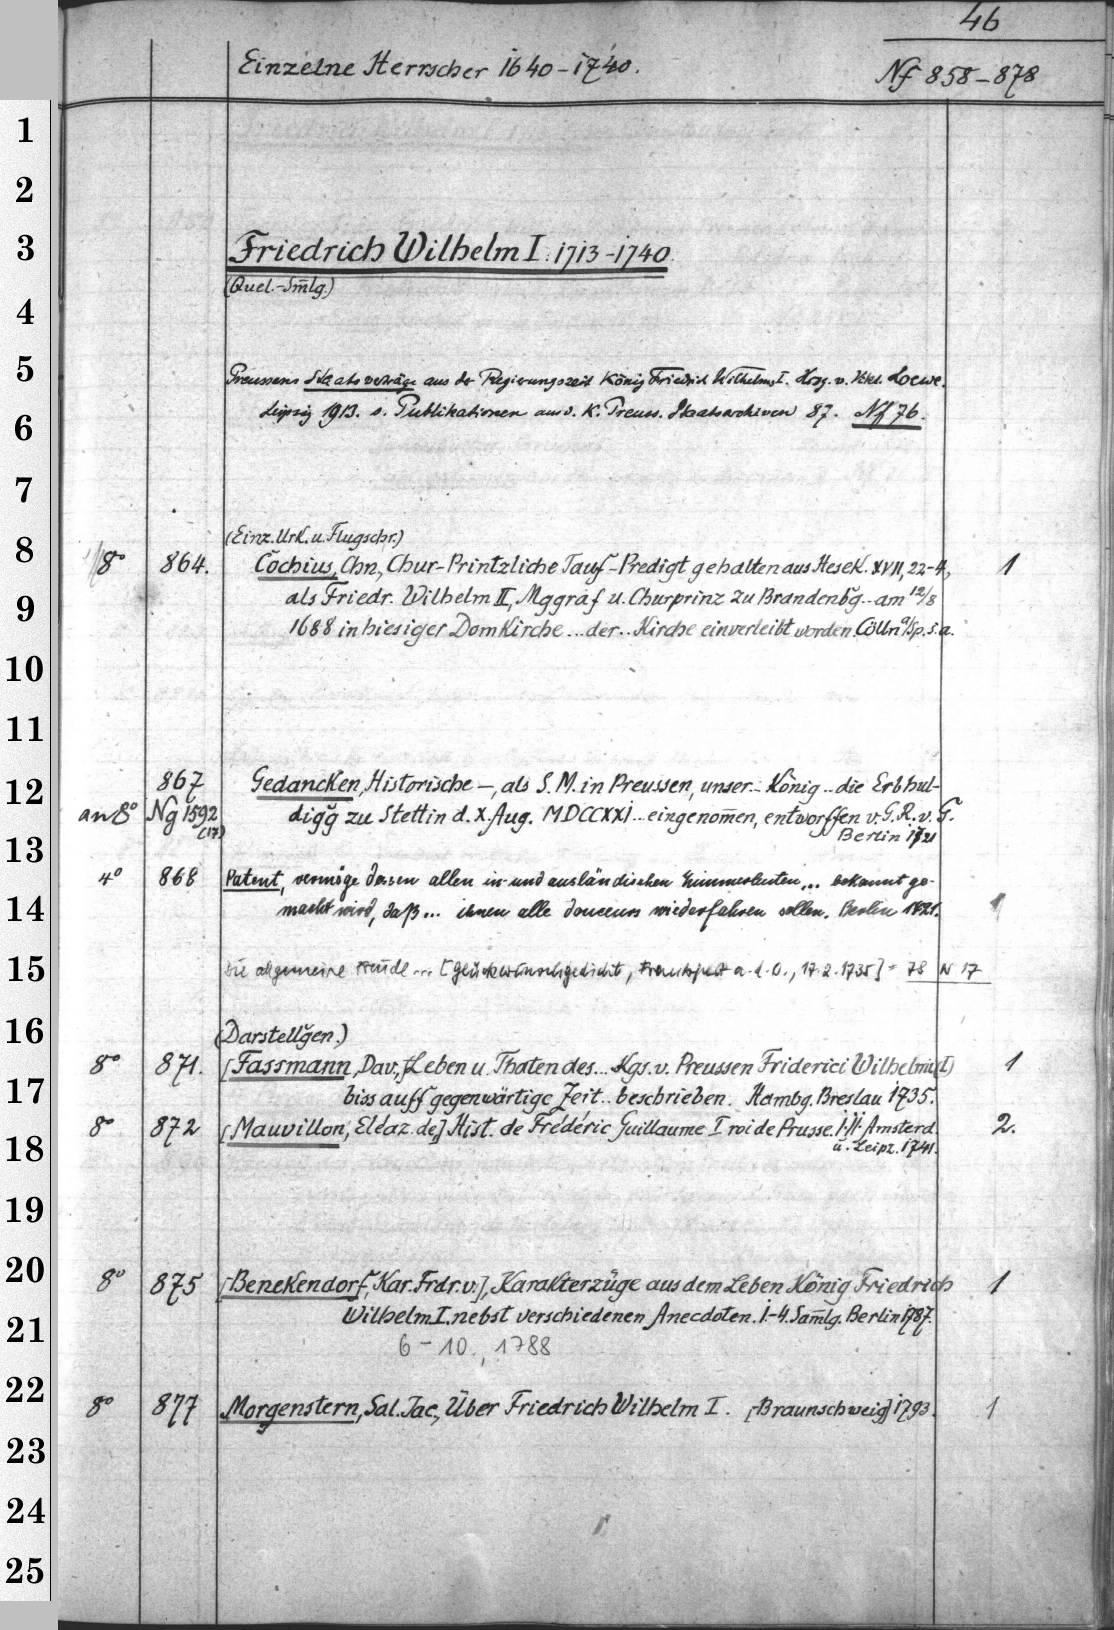 46
Einzelne Herrscher 1640-1740.
Nf 858-878
1
2
3
4
5
6
7
8
9
10
11
12
13
14
15
16
17
18
19
20
21
22
23
24
25
Friedrich Wilhelm I. 1713-1740.
(Quel.-Sm̅lg.)
Preussens Staatsverträge aus der Regierungszeit König Friedrich Wilhelms I. Hrsg. v. Vikt. Loewe.
Leipzig 1913. s. Publikationen aus d. K. Preuss. Staatsarchiven 87. Nf 76.
(Einz. Urk. u. Flugschr.)
8° 864. Cochius, Chn., Chur-Printzliche Tauf-Predigt gehalten aus Hesek. XVII, 22-4, 1
als Friedr. Wilhelm II, Mggraf u. Churprinz zu Brandenbg̃.. am 12/8
1688 in hiesiger Domkirche... der.. Kirche einverleibt worden. Cölln a/Sp. s. a.
867 Gedancken, Historische -, als S. M. in Preussen, unser.. König.. die Erbhul-
an 8° Ng 1592 digg̃ zu Stettin d. X. Aug. MDCCXXI... eingenom̅en, entworffen v. G. R. v. G.
(17) Berlin 1721
4° 868 Patent, vermöge dessen allen in- und ausländischen Zimmerleuten... bekannt ge-
macht wird, daß... ihnen alle douceurs wiederfahren sollen. Berlin 1721. 1
Die allgemeine Freude... [Glückwunschgedicht, Frankfurt a. d. O., 17.2.1735] = 78 N 17
(Darstellg̃en.)
8° 871. [Fassmann, Dav.,] Leben u. Thaten des... Kgs. v. Preussen Friderici Wilhelmi (I) 1
biss auff gegenwärtige Zeit.. beschrieben. Hambg. Breslau 1735.
8° 872 [Mauvillon, Eléaz. de,] Hist. de Frédéric Guillaume I roi de Prusse. I. II. Amsterd. 2.
u. Leipz. 1741.
8° 875 [Benekendorf, Kar. Frdr. v.], Karakterzüge aus dem Leben König Friedrich 1
Wilhelm I. nebst verschiedenen Anecdoten. 1-4. Sam̅lg. Berlin 1787.
6-10., 1788
8° 877 Morgenstern, Sal. Jac., Über Friedrich Wilhelm I. [Braunschweig] 1793. 1